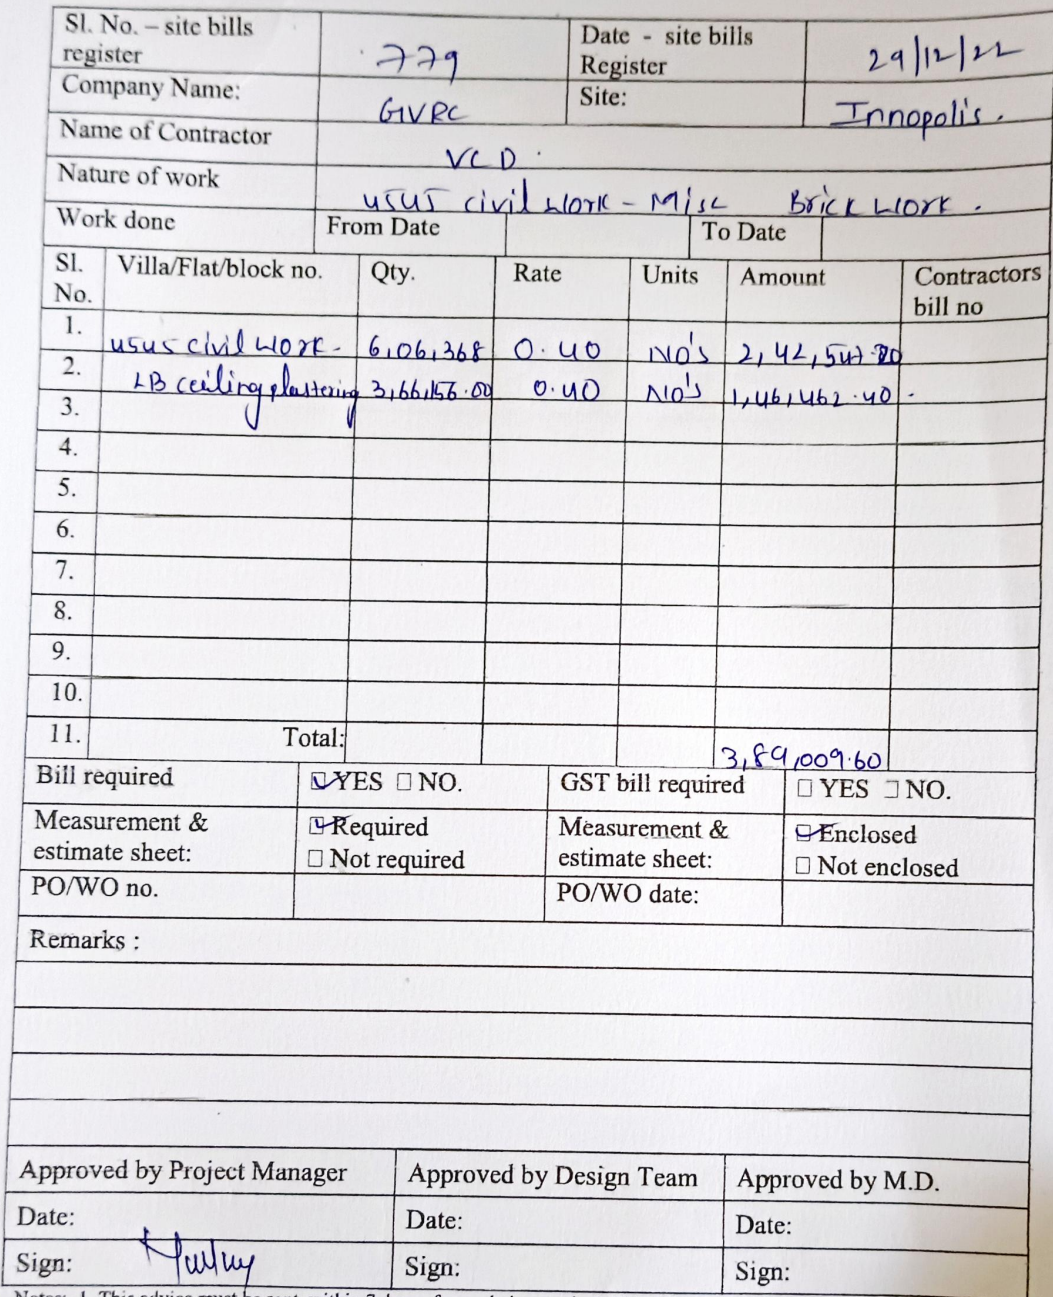 Sl. No. – site bills register 779 Date - site bills Register 29/12/22
Company Name: GVRC Site: Innopolis.
Name of Contractor VCD.
Nature of work 4545 civil work - Misc Brick work.
Work done From Date To Date
Sl. No. Villa/Flat/block no. Qty. Rate Units Amount Contractors bill no
1. 4545 civil work - 6,06,368 0.40 No's 2,42,547.20
2. LB ceiling plastering 3,66,156.00 0.40 No's 1,46,462.40 -
3.
4.
5.
6.
7.
8.
9.
10.
11. Total: 3,89,009.60
Bill required ☑ YES ☐ NO. GST bill required ☐ YES ☐ NO.
Measurement & estimate sheet: ☑ Required ☐ Not required Measurement & estimate sheet: ☑ Enclosed ☐ Not enclosed
PO/WO no. PO/WO date:
Remarks :
Approved by Project Manager Approved by Design Team Approved by M.D.
Date: Date: Date:
Sign: Sign: Sign: